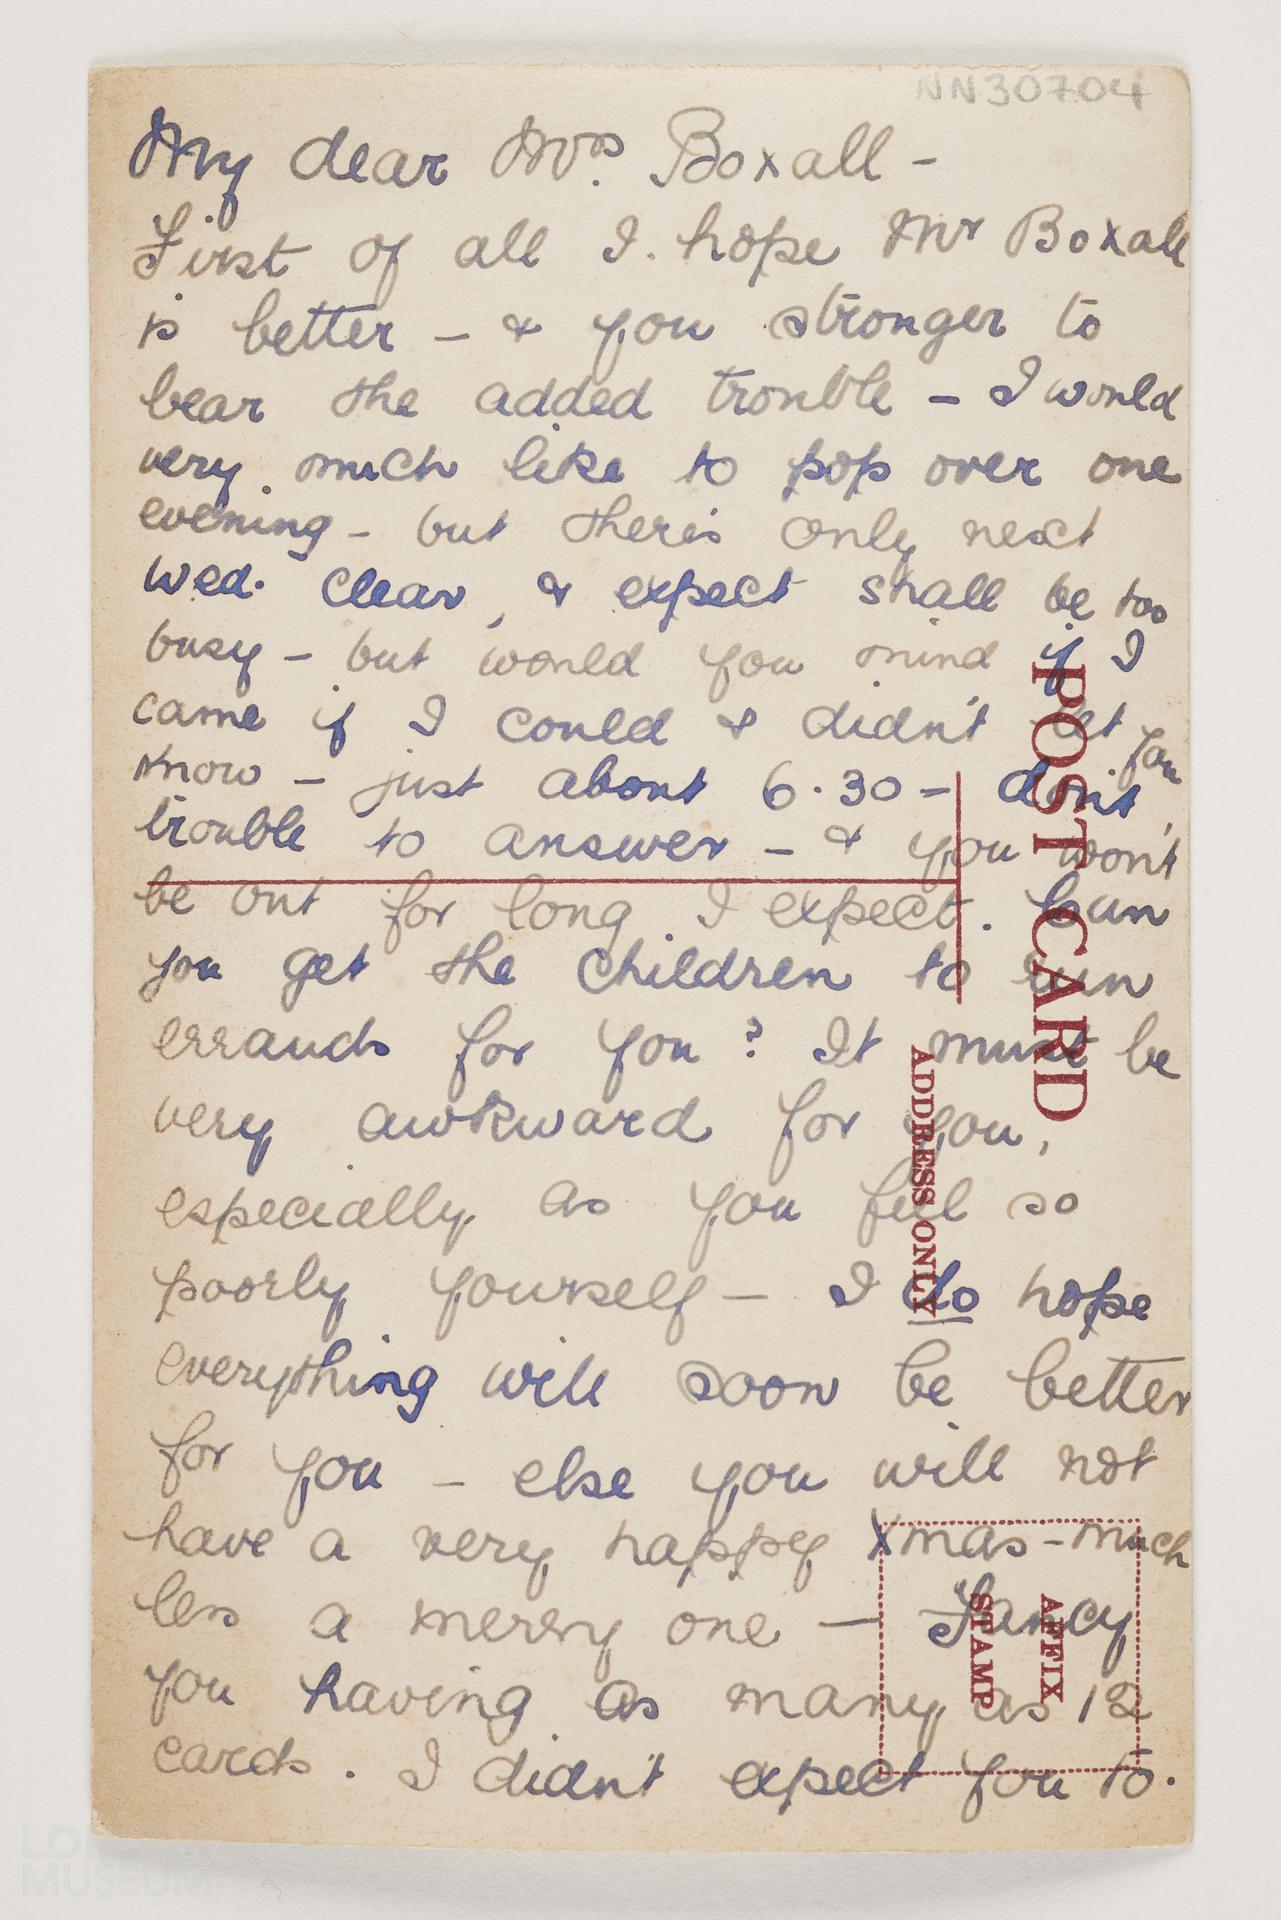 NN30704
My dear Mrs. Boxall -
First of all I. hope Mr Boxall
is better - & you stronger to
bear the added trouble - I would
very much like to pop over one
evening - but there's only next
Wed. clear, & expect shall be too
busy - but would you mind if I
came if I could & didn't let you
know - just about 6.30 - don't
trouble to answer - & you won't
be out for long I expect. Can
you get the children to run
errands for you? It must be
very awkward for you,
especially as you feel so
poorly yourself - I do hope
everything will soon be better
for you - else you will not
have a very happy Xmas - much
less a merry one - Fancy
you having as many as 12
cards. I didn't expect you to.
POST CARD
ADDRESS ONLY
AFFIX
STAMP
LONDON
MUSEUM